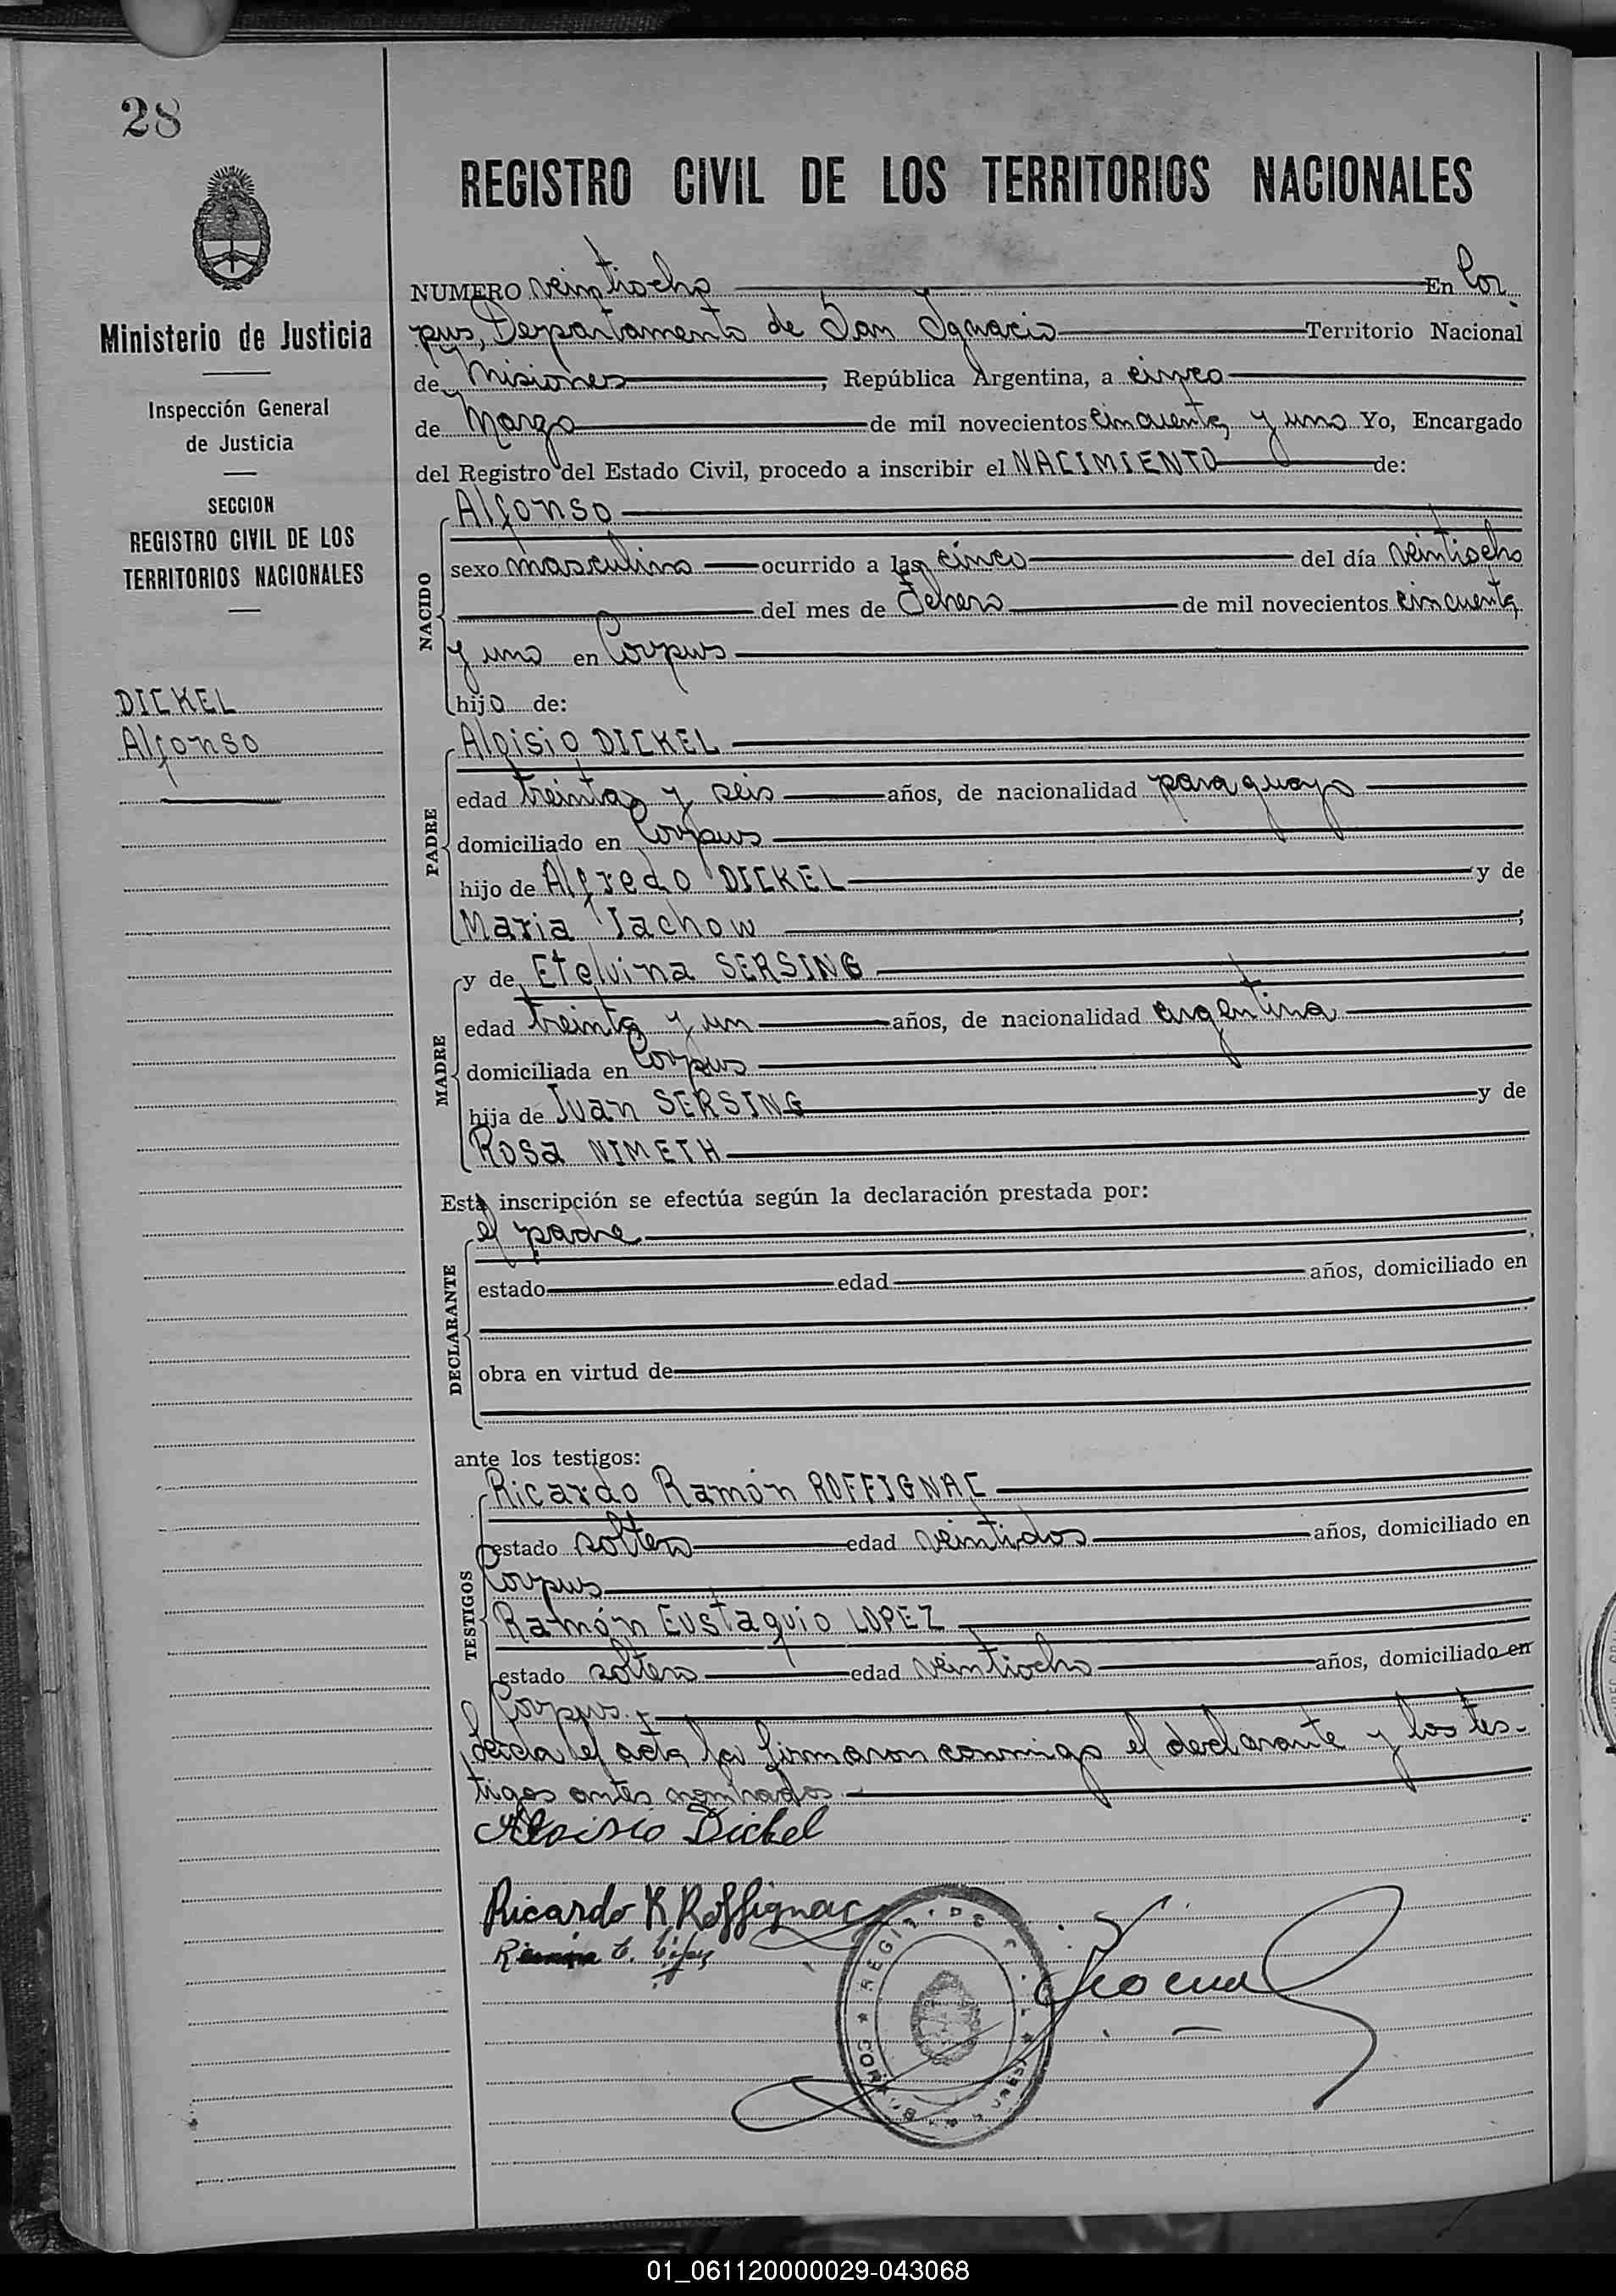 28
Ministerio de Justicia
Inspección General
de Justicia
SECCION
REGISTRO CIVIL DE LOS
TERRITORIOS NACIONALES
DICKEL
Alfonso
REGISTRO CIVIL DE LOS TERRITORIOS NACIONALES
NUMERO veintiocho En Cor-
pus, Departamento de San Ignacio Territorio Nacional
de Misiones, República Argentina, a cinco
de Marzo de mil novecientos cincuenta y uno Yo, Encargado
del Registro del Estado Civil, procedo a inscribir el NACIMIENTO de:
NACIDO
Alfonso
sexo masculino ocurrido a las cinco del día veintiocho
del mes de Febrero de mil novecientos cincuenta
y uno en Corpus
hijo de:
PADRE
Aloisio DICKEL
edad treinta y seis años, de nacionalidad paraguayo
domiciliado en Corpus
hijo de Alfredo DICKEL y de
Maria Jachow;
MADRE
y de Etelvina SERSING
edad treinta y un años, de nacionalidad argentina
domiciliada en Corpus
hija de Juan SERSING y de
Rosa NIMETH
Esta inscripción se efectúa según la declaración prestada por:
DECLARANTE
el padre,
estado edad años, domiciliado en
obra en virtud de
ante los testigos:
TESTIGOS
Ricardo Ramón ROFFIGNAC
estado soltero edad veintidos años, domiciliado en
Corpus
Ramón Eustaquio LOPEZ
estado soltero edad veintiocho años, domiciliado en
Corpus.
Leida el acta, la firmaron conmigo el declarante y los tes-
tigos antes nombrados.
Aloisio Dickel
Ricardo R Roffignac
01_061120000029-043068